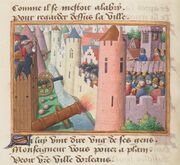 Comme il se mestoit a la huy
Pour regarder dessus la ville.
luy vint dire vng de ses gens.
Monseigneur vous voiez a plain
Vostre ville dorleans.